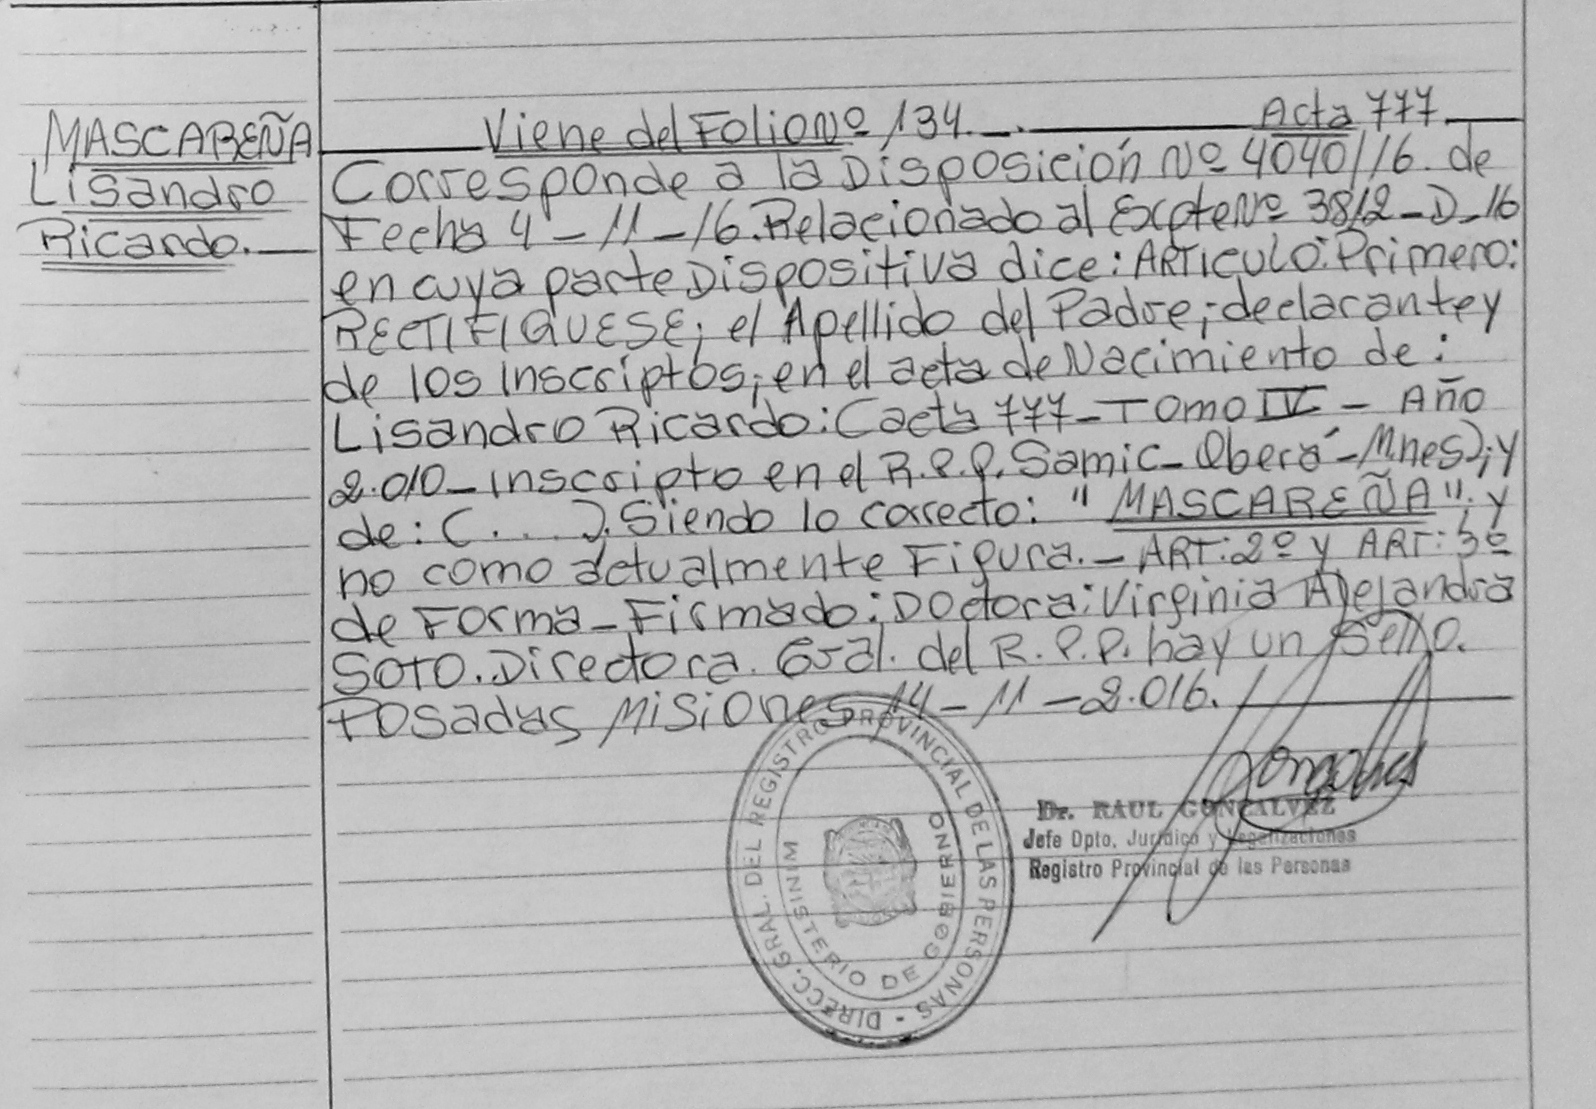 MASCAREÑA
Lisandro
Ricardo.
Viene del Folio Nº 134. Acta 777
Corresponde a la Disposición Nº 4040/16. de
Fecha 4-11-16. Relacionado al Expte Nº 3812-D-16
en cuya parte Dispositiva dice: ARTICULO: Primero:
RECTIFIQUESE; el Apellido del Padre; declarante y
de los Inscriptos; en el acta de Nacimiento de:
Lisandro Ricardo: (acta 777-Tomo IV - Año
2.010-inscripto en el R.P.P. Samic-Oberá-Mnes); y
de: (...). Siendo lo correcto: "MASCAREÑA"; y
no como actualmente Figura.- ART: 2º y ART: 3º
de Forma-Firmado: Doctora: Virginia Alejandra
SOTO. Directora. Gral. del R.P.P. hay un Sello.
Posadas Misiones 14-11-2.016.
DIRECC. GRAL. DEL REGISTRO PROVINCIAL DE LAS PERSONAS -
MINISTERIO DE GOBIERNO
Dr. RAUL GONCALVEZ
Jefe Dpto. Jurídico y Legalizaciones
Registro Provincial de las Personas